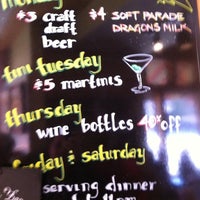 monday
$3 craft $4 SOFT PARADE
draft DRAGONS MILK
beer
tini tuesday
$5 martinis
thursday
wine bottles 40% off
friday & saturday
serving dinner